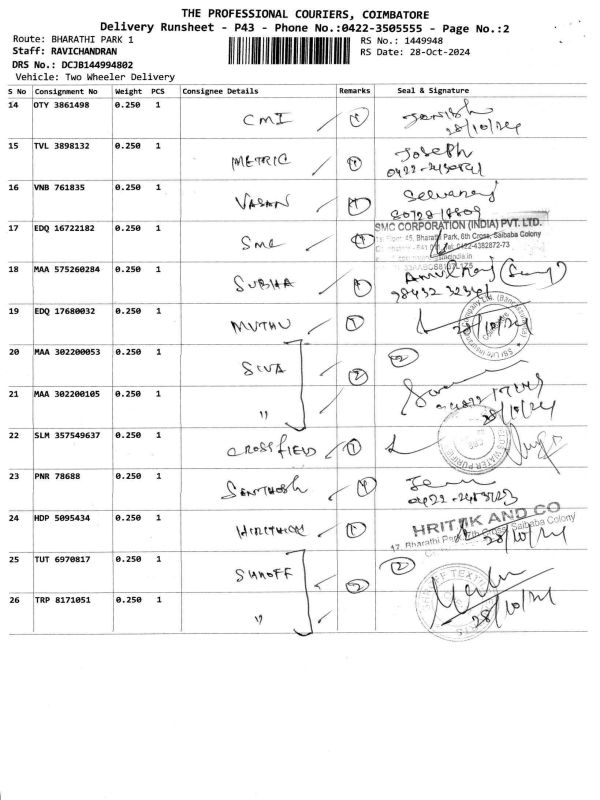 THE PROFESSIONAL COURIERS, COIMBATORE
Delivery Runsheet - P43 - Phone No.:0422-3505555 - Page No.:2
Route: BHARATHI PARK 1 RS No.: 1449948
Staff: RAVICHANDRAN RS Date: 28-Oct-2024
DRS No.: DCJB144994802
Vehicle: Two Wheeler Delivery
S No Consignment No Weight PCS Consignee Details Remarks Seal & Signature
14 OTY 3861498 0.250 1 CMI 1
28/10/24
15 TVL 3898132 0.250 1 METRIC 1 Joseph
16 VNB 761835 0.250 1 VASAN 1 Selvaraj
SMC CORPORATION (INDIA) PVT. LTD.
Park, 6th Cross, Saibaba Colony
17 EDQ 16722182 0.250 1 SMC 1
18 MAA 575260284 0.250 1 SUBHA 1
19 EDQ 17680032 0.250 1 MUTHU 1 28/10/24
20 MAA 302200053 0.250 1 SIVA 2 2
21 MAA 302200105 0.250 1 "
28/10/24
22 SLM 357549637 0.250 1 CROSSFIELD 1
23 PNR 78688 0.250 1 SANTHOSH 1
HRITIK AND CO
17, Bharathi Park 7th Cross, Saibaba Colony
24 HDP 5095434 0.250 1 1 28/10/24
25 TUT 6970817 0.250 1 SUNOFF 2 2
26 TRP 8171051 0.250 1 " 28/10/24